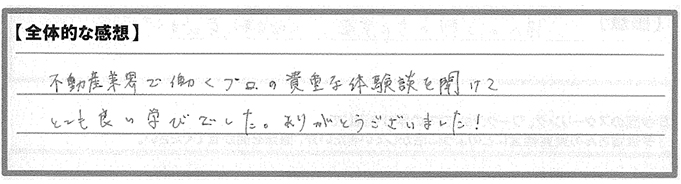 【全体的な感想】
不動産業界で働くプロの貴重な体験談を聞けて
とても良い学びでした。ありがとうございました！